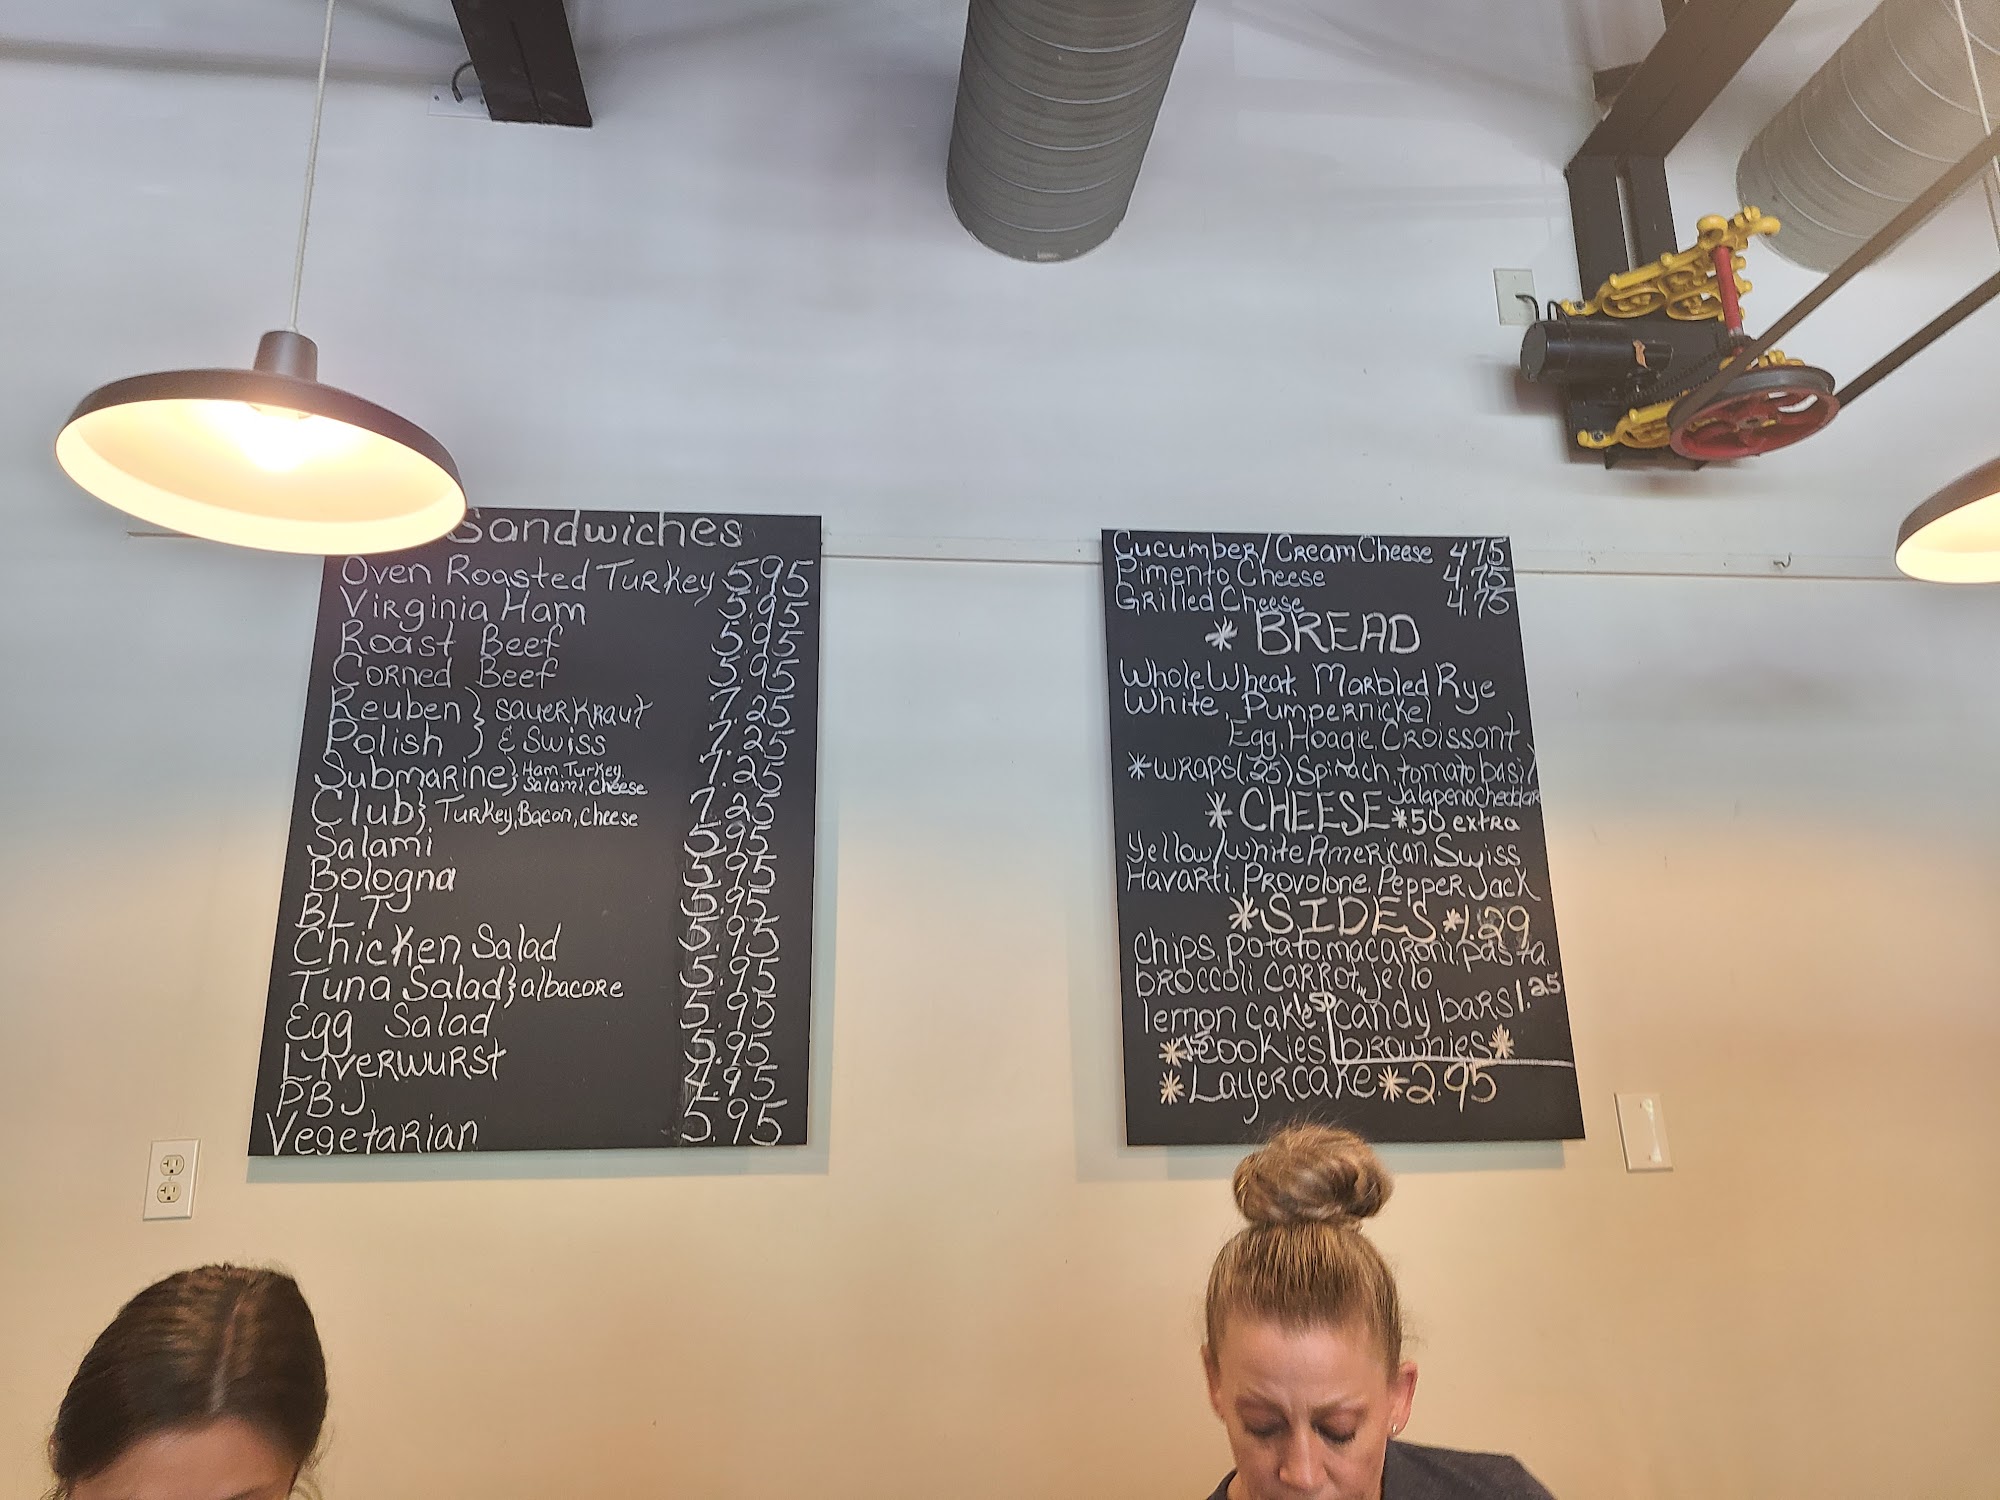 Sandwiches
Oven Roasted Turkey 5.95
Virginia Ham 5.95
Roast Beef 5.95
Corned Beef 5.95
Reuben } sauerkraut 7.25
Polish } & Swiss 7.25
Submarine } Ham, Turkey, Salami, Cheese 7.25
Club } Turkey, Bacon, Cheese 7.25
Salami 5.95
Bologna 5.95
BLT 5.95
Chicken Salad 5.95
Tuna Salad } albacore 5.95
Egg Salad 5.95
Liverwurst 5.95
PBJ 4.95
Vegetarian 5.95
Cucumber/Cream Cheese 4.75
Pimento Cheese 4.75
Grilled Cheese 4.75
* BREAD
Whole Wheat, Marbled Rye
White, Pumpernickel
Egg, Hoagie, Croissant
*WRAPS (.25) Spinach, tomato basil
Jalapeno Cheddar
* CHEESE * .50 extra
Yellow/White American, Swiss
Havarti, Provolone, Pepper Jack
*SIDES *1.29
chips, potato, macaroni, pasta,
broccoli, carrot, jello
lemon cake 1.50 candy bars 1.25
* cookies brownies *
* Layercake * 2.95